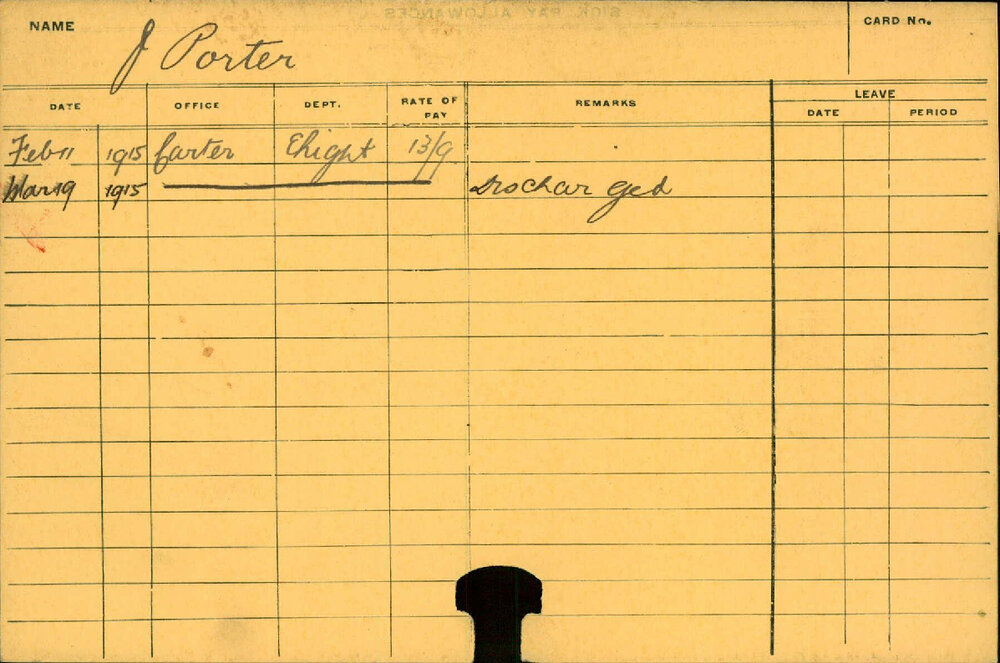 NAME J Porter CARD No.
DATE OFFICE DEPT. RATE OF PAY REMARKS LEAVE
DATE PERIOD
Feb 11 1915 Carter 13/9
Mar 19 1915 Dischar ged